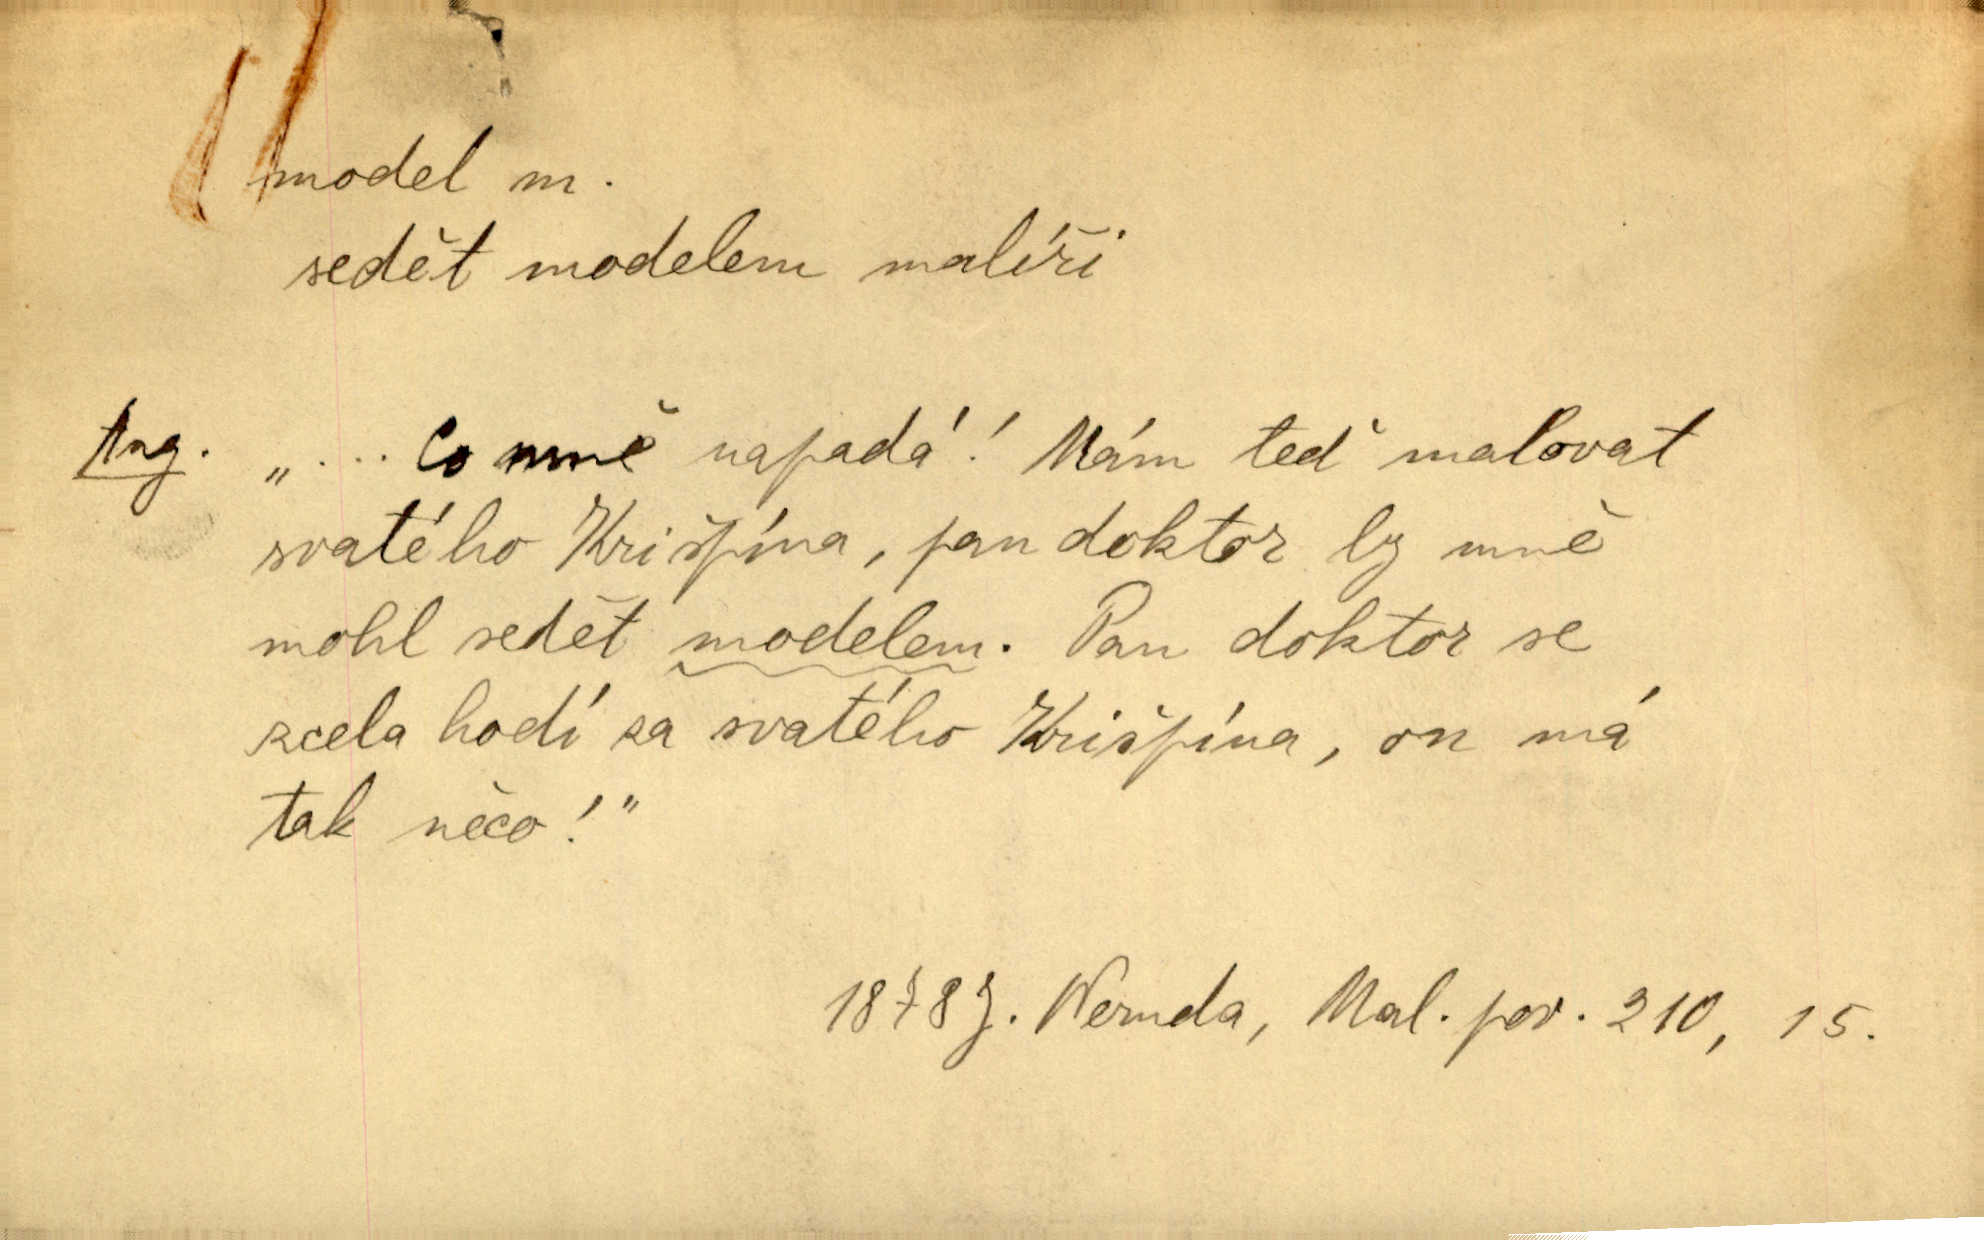 model m.
sedět modelem malíři
Ang. „.... Co mně napadá! Mám teď malovat
svatého Krišpína, pan doktor by mně
mohl sedět modelem. Pan doktor se
zcela hodí za svatého Krišpína, on má
tak něco!"
1878 J. Neruda, Mal. pov. 210, 15.